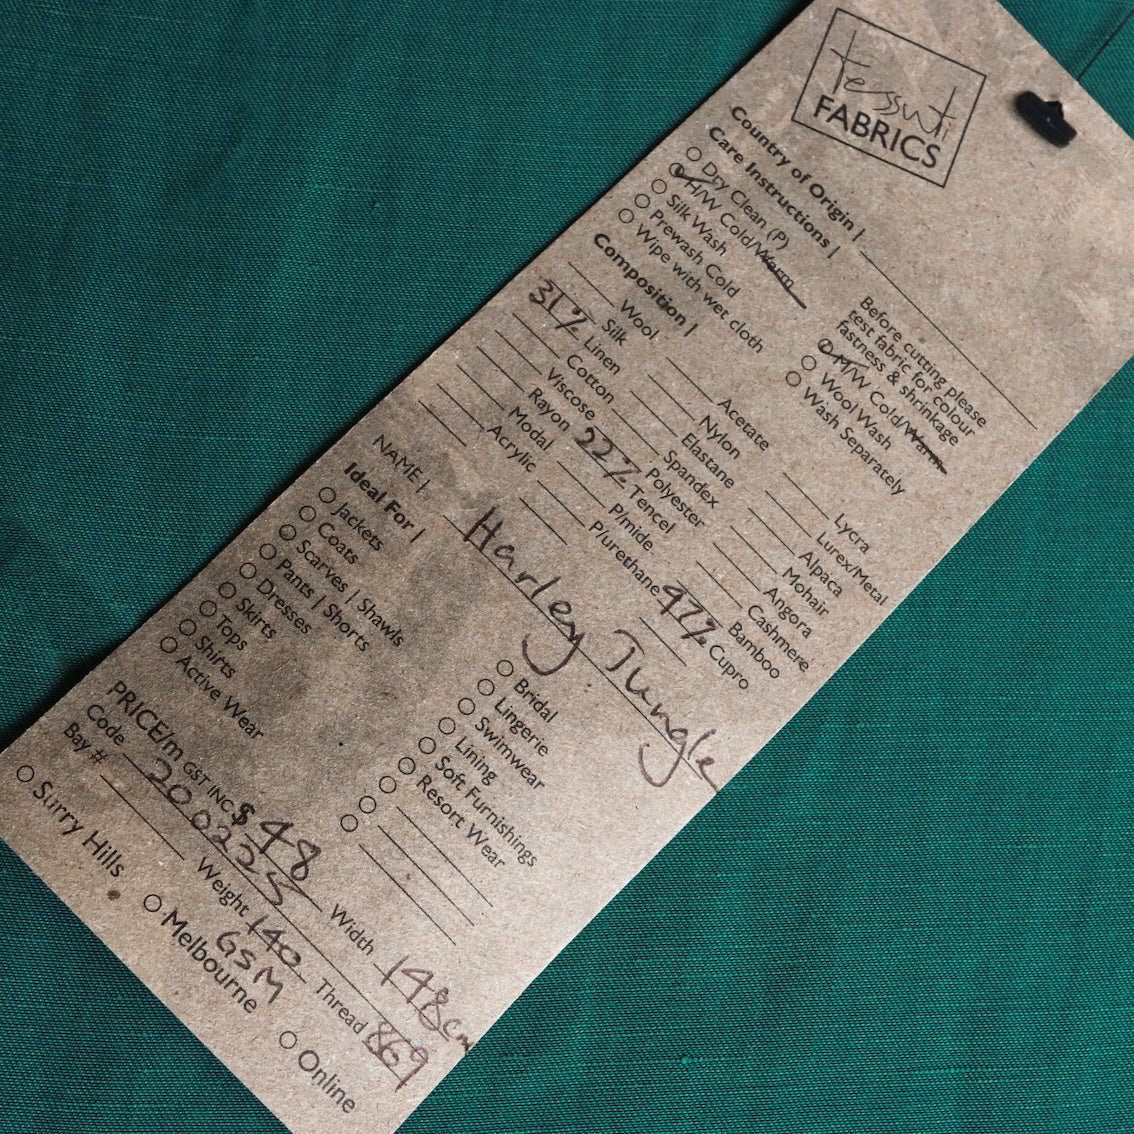 tessuti
FABRICS
Country of Origin |
Care Instructions |
Dry Clean (P)
H/W Cold/Warm
Silk Wash
Prewash Cold
Wipe with wet cloth
Before cutting please
test fabric for colour
fastness & shrinkage
M/W Cold/Warm
Wool Wash
Wash Separately
Composition |
Wool
Silk
31% Linen
Cotton
Viscose
Rayon
Modal
Acrylic
Acetate
Nylon
Elastane
Spandex
Polyester
22% Tencel
P/mide
P/urethane
Lycra
Lurex/Metal
Alpaca
Mohair
Angora
Cashmere
Bamboo
47% Cupro
NAME | Harley Jungle
Ideal For |
Jackets
Coats
Scarves | Shawls
Pants | Shorts
Dresses
Skirts
Tops
Shirts
Active Wear
Bridal
Lingerie
Swimwear
Lining
Soft Furnishings
Resort Wear
PRICE/m GST INC $48 Width 148cm
Code 200225
Bay # Weight 140 GSM Thread 869
Surry Hills Melbourne Online